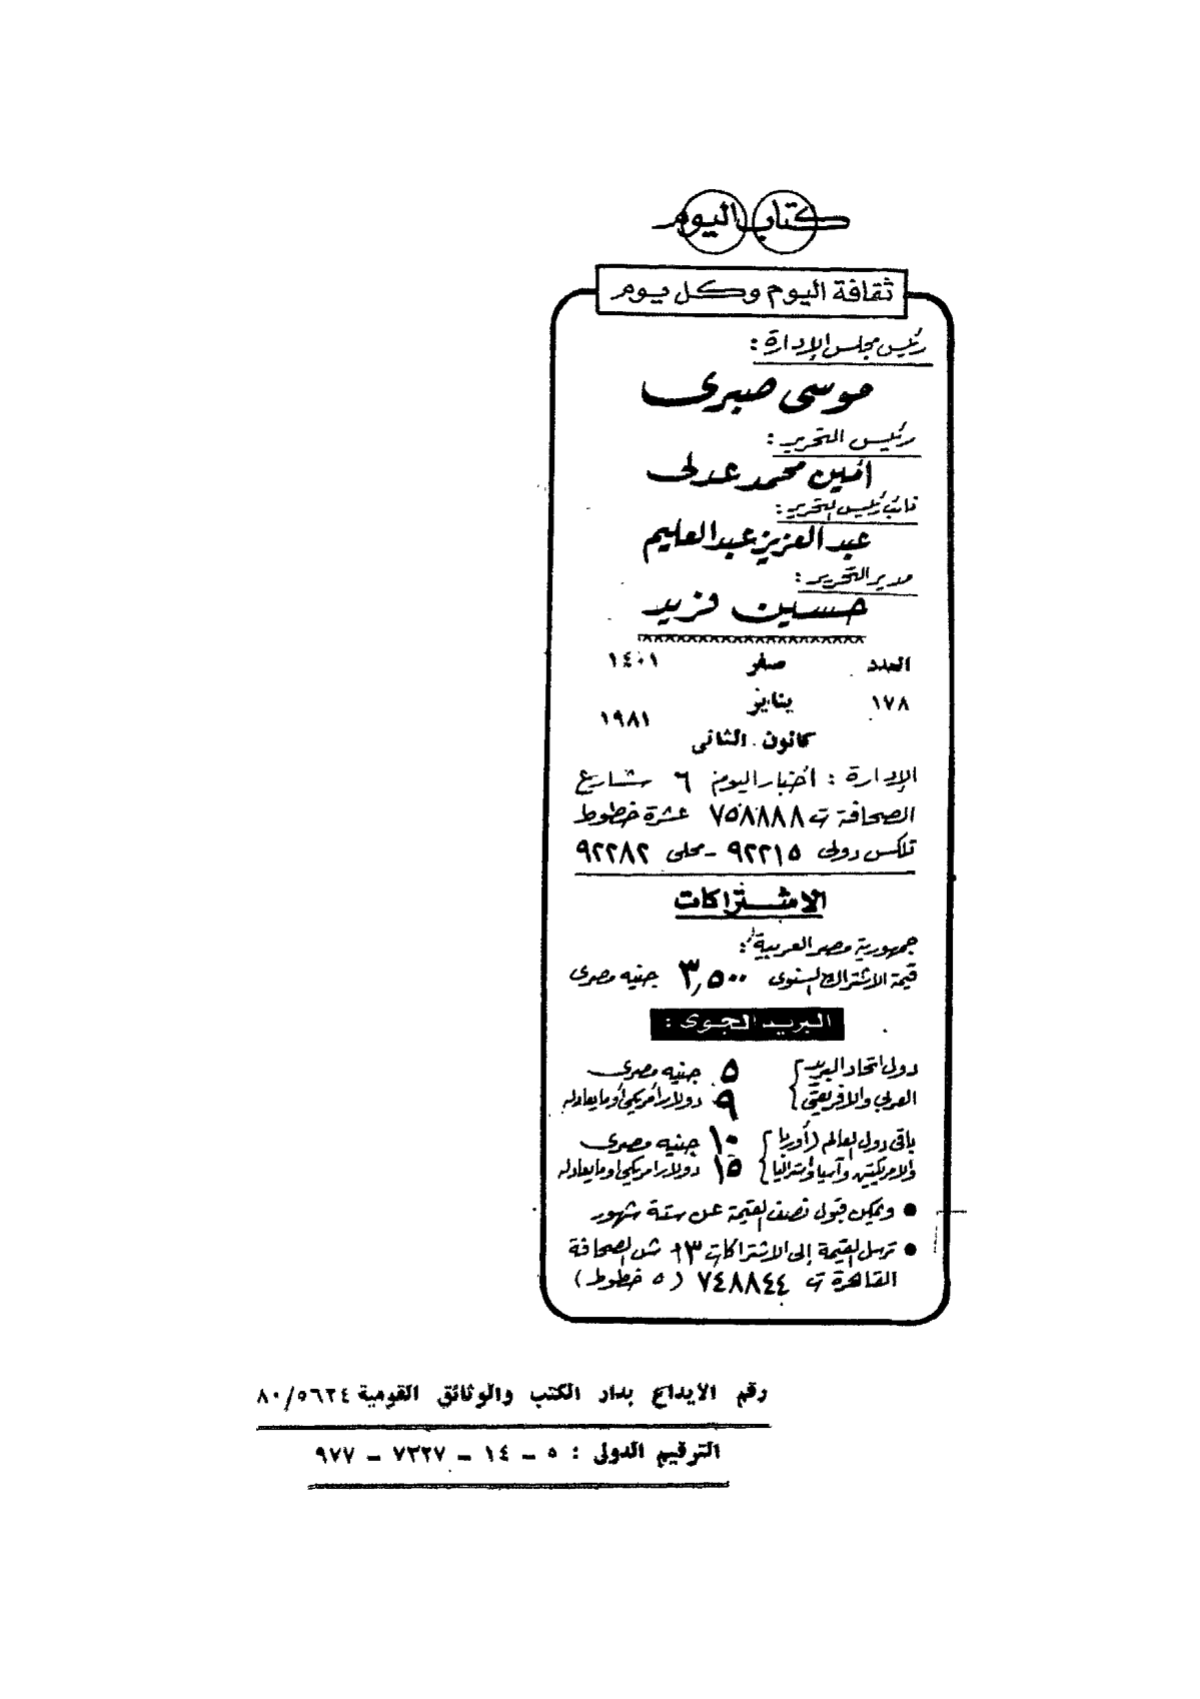 كتاب اليوم
ثقافة اليوم وكل يوم
رئيس مجلس الإدارة :
موسى صبرى
رئيس التحرير :
أمين محمد عدلى
نائب رئيس التحرير :
عبد العزيز عبد العليم
مدير التحرير :
حسين فريد
العدد صفر ١٤٠١
١٧٨ يناير
١٩٨١
كانون الثانى
الإدارة : أخبار اليوم ٦ شارع
الصحافة ت ٧٥٨٨٨٨ عشرة خطوط
تلكس دولى ٩٢٢١٥ - محلى ٩٢٢٨٢
الاشتراكات
جمهورية مصر العربية :
قيمة الاشتراك السنوى ٣,٥٠٠ جنيه مصرى
البريد الجوى :
دول اتحاد البريد } ٥ جنيه مصرى
العربى والافريقى } ٩ دولار أمريكى أو ما يعادله
باقى دول العالم (أوربا } ١٠ جنيه مصرى
والامريكتين وآسيا وأستراليا } ١٥ دولار امريكى او ما يعادله
● ويمكن قبول نصف القيمة عن ستة شهور
● ترسل القيمة إلى الاشتراكات ٣ ش الصحافة
القاهرة ت ٧٤٨٨٤٤ (٥ خطوط)
رقم الأيداع بدار الكتب والوثائق القومية ٨٠/٥٦٢٤
الترقيم الدولى : ٥ - ١٤ - ٧٣٢٧ - ٩٧٧